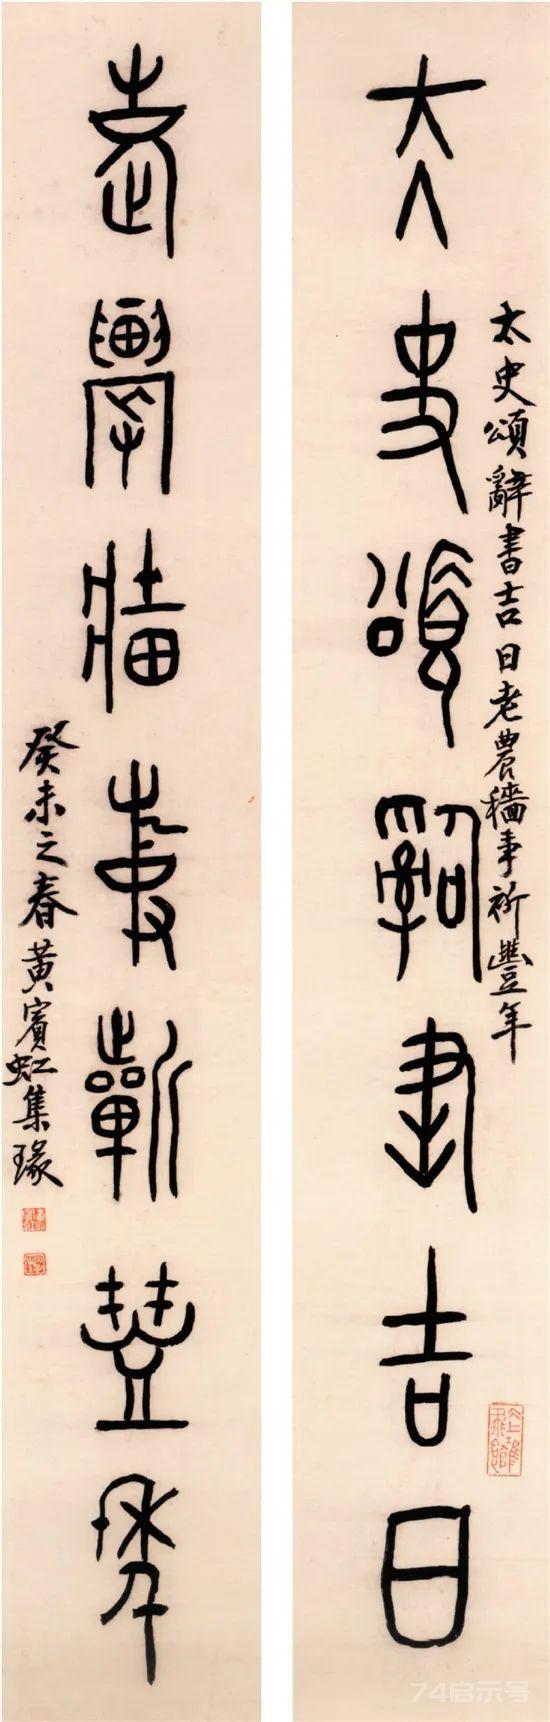 大史頌辭書吉日
太史頌辭書吉日老農穡事祈豐年
老農穡事祈豐年
癸未之春黃賓虹集瑑
74启示号